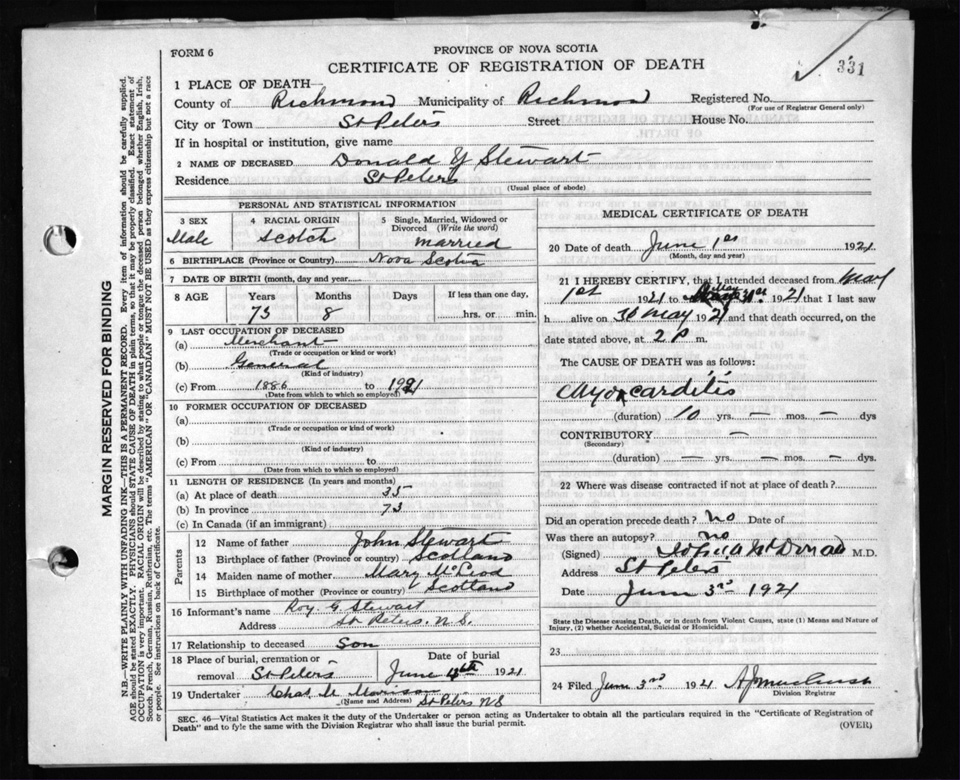 MARGIN RESERVED FOR BINDING
N.B.—WRITE PLAINLY WITH UNFADING INK—THIS IS A PERMANENT RECORD. Every item of information should be carefully supplied.
AGE should be stated EXACTLY. PHYSICIANS should STATE CAUSE OF DEATH in plain terms, so that it may be properly classified. Exact statement of
OCCUPATION is very important. RACIAL ORIGIN will be described by stating to what people or tongue the deceased person belonged whether English, Irish,
Scotch, French, German, Russian, Ruthenian, etc. The terms "AMERICAN" OR "CANADIAN" MUST NOT BE USED as they express citizenship but not a race
or people. See instructions on back of Certificate.
FORM 6
PROVINCE OF NOVA SCOTIA
CERTIFICATE OF REGISTRATION OF DEATH
331
1 PLACE OF DEATH
County of Richmond Municipality of Richmond Registered No.
(For use of Registrar General only)
City or Town St Peters Street House No.
If in hospital or institution, give name
2 NAME OF DECEASED Donald Y Stewart
Residence St Peters
(Usual place of abode)
PERSONAL AND STATISTICAL INFORMATION
3 SEX 4 RACIAL ORIGIN 5 Single, Married, Widowed or
Divorced (Write the word)
Male Scotch married
6 BIRTHPLACE (Province or Country) Nova Scotia
7 DATE OF BIRTH (month, day and year)
8 AGE Years Months Days If less than one day,
73 8 hrs. or min.
9 LAST OCCUPATION OF DECEASED
(a) Merchant
(Trade or occupation or kind or work)
(b) General
(Kind of industry)
(c) From 1886 to 1921
(Date from which to which so employed)
10 FORMER OCCUPATION OF DECEASED
(a)
(Trade or occupation or kind of work)
(b)
(Kind of industry)
(c) From to
(Date from which to which so employed)
11 LENGTH OF RESIDENCE (In years and months)
(a) At place of death 35
(b) In province 73
(c) In Canada (if an immigrant)
Parents
12 Name of father John Stewart
13 Birthplace of father (Province or country) Scotland
14 Maiden name of mother Mary McLeod
15 Birthplace of mother (Province or country) Scotland
16 Informant's name Roy G Stewart
Address St Peters N.S.
17 Relationship to deceased Son
18 Place of burial, cremation or Date of burial
removal St Peters June 4th 1921
19 Undertaker Chas Morrison
(Name and Address) St Peters NS
MEDICAL CERTIFICATE OF DEATH
20 Date of death June 1st 1921
(Month, day and year)
21 I HEREBY CERTIFY, that I attended deceased from May
1st 1921 to 31st 1921 that I last saw
h alive on 30 May 1921 and that death occurred, on the
date stated above, at 2 P m.
The CAUSE OF DEATH was as follows:
Myocarditis
(duration) 10 yrs. — mos. — dys
CONTRIBUTORY —
(Secondary)
(duration) — yrs. — mos. — dys.
22 Where was disease contracted if not at place of death?
Did an operation precede death? no Date of
Was there an autopsy? no
(Signed) M.D.
Address St Peters
Date June 3rd 1921
State the Disease causing Death, or in death from Violent Causes, state (1) Means and Nature of
Injury, (2) whether Accidental, Suicidal or Homicidal.
23
24 Filed June 3rd 1921
Division Registrar
SEC. 46—Vital Statistics Act makes it the duty of the Undertaker or person acting as Undertaker to obtain all the particulars required in the "Certificate of Registration of
Death" and to fyle the same with the Division Registrar who shall issue the burial permit.
(OVER)